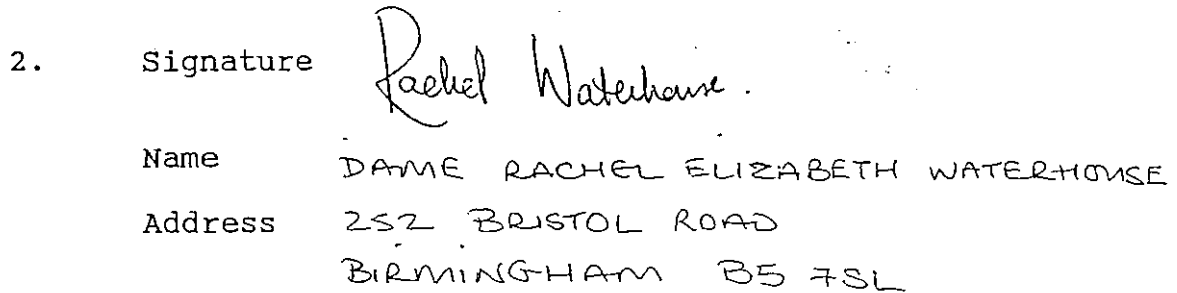 2. Signature Rachel Waterhouse.
Name DAME RACHEL ELIZABETH WATERHOUSE
Address 252 BRISTOL ROAD
BIRMINGHAM B5 7SL